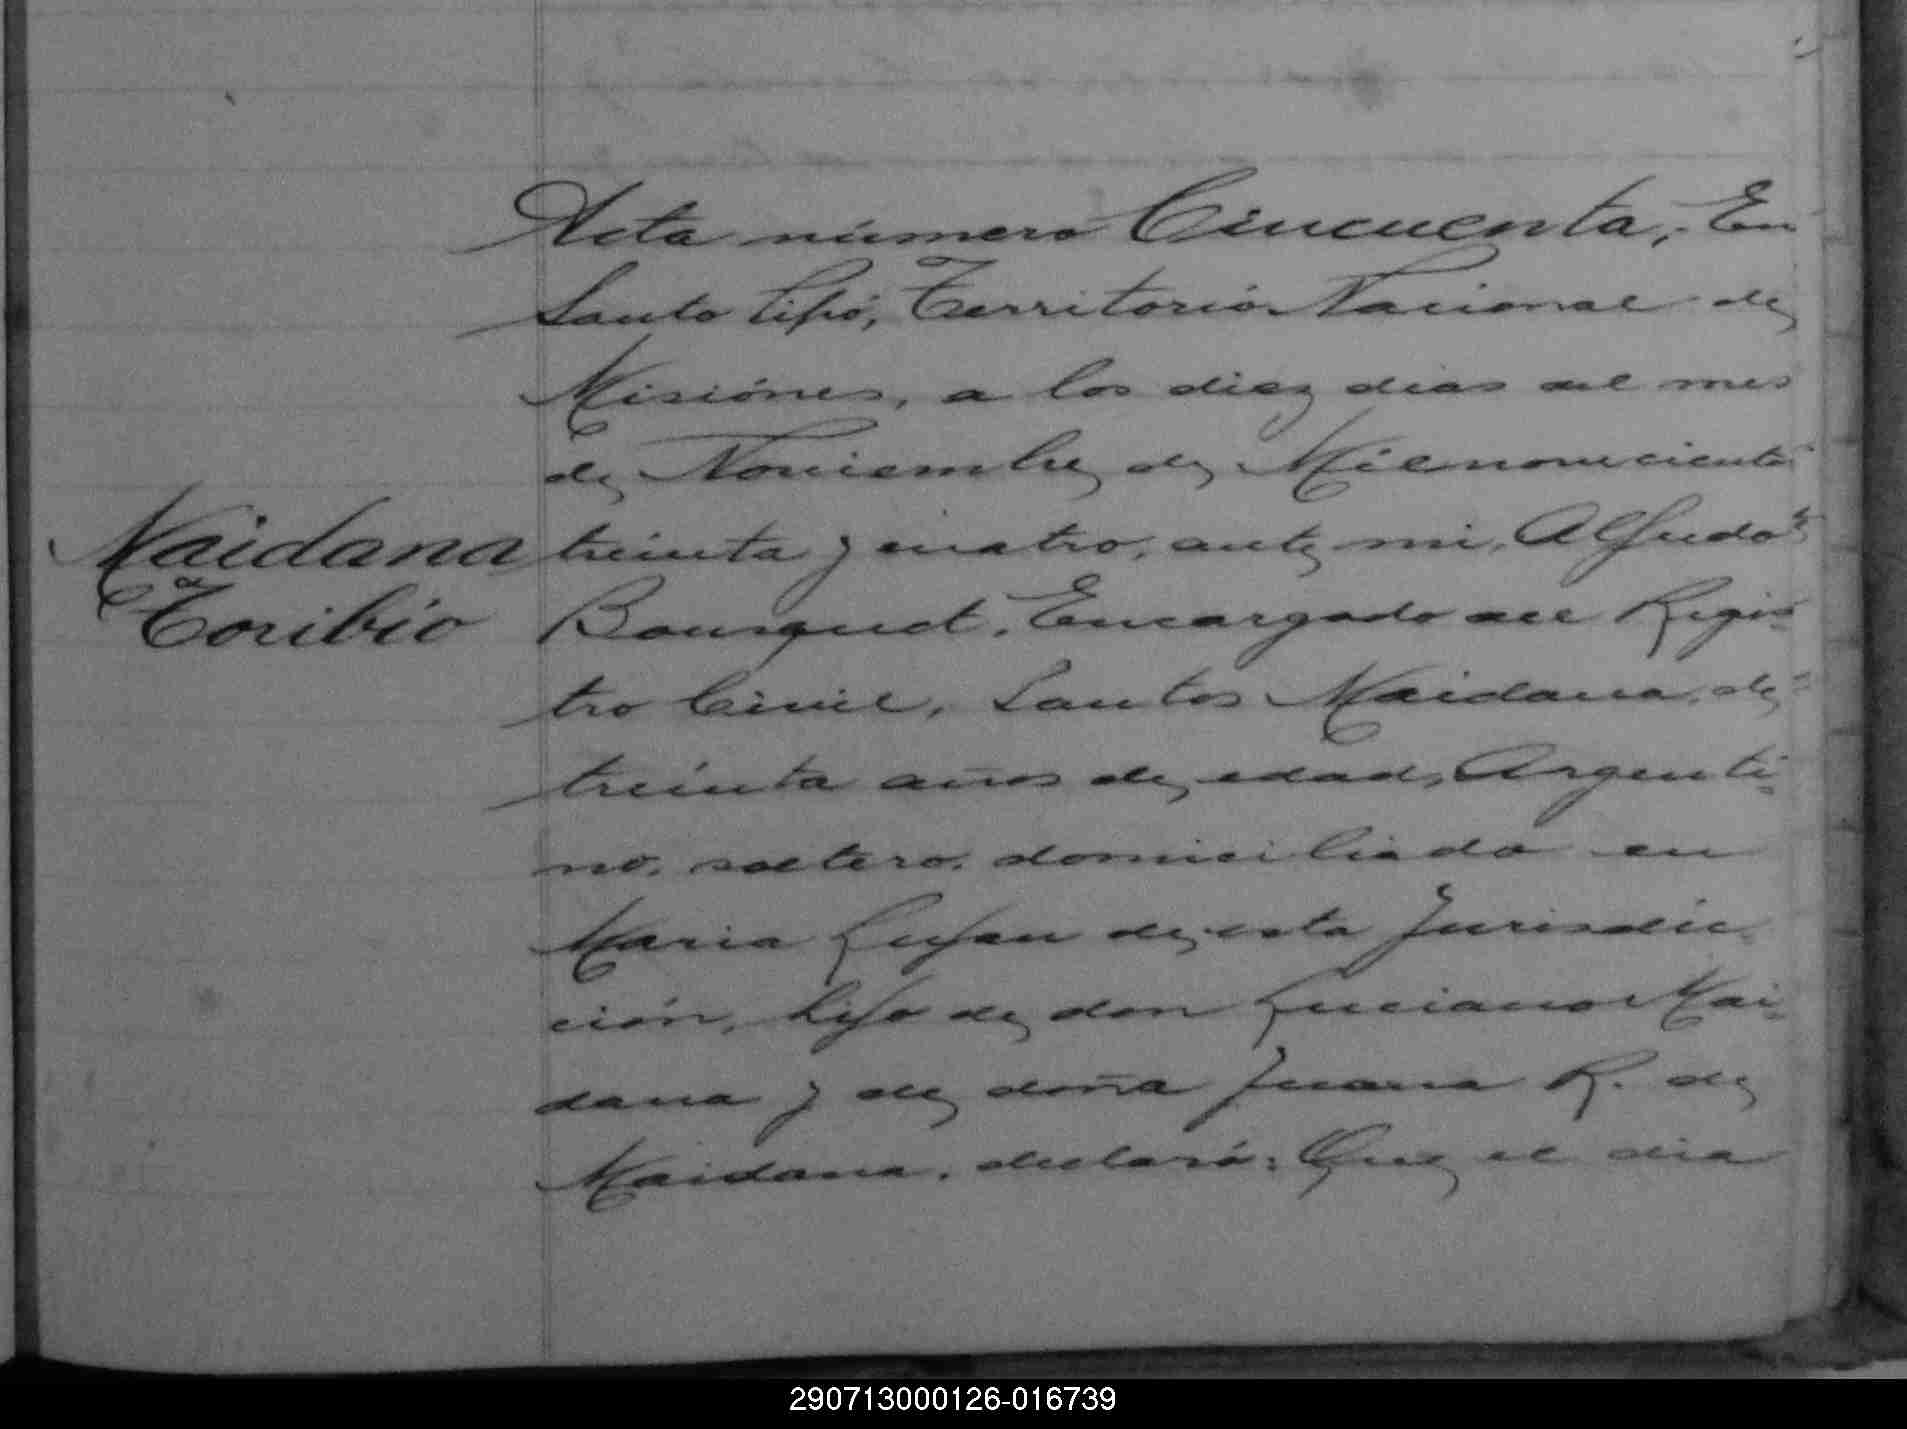 Acta número Cincuenta, En
Santo Pipó, Territorio Nacional de
Misiónes, a los diez dias del mes
de Noviembre de Milnovecientos
Maidana
Toribio
treinta y cuatro, ante mi, Alfredo
Bousquet, Encargado del Regis-
tro Civil, Santos Maidana, de
treinta años de edad, Argenti-
no, soltero, domiciliado en
Maria Lujan de esta Jurisdic-
ción, hijo de don Luciano Mai-
dana y de doña Juana R. de
Maidana, declaró: Que el dia
290713000126-016739